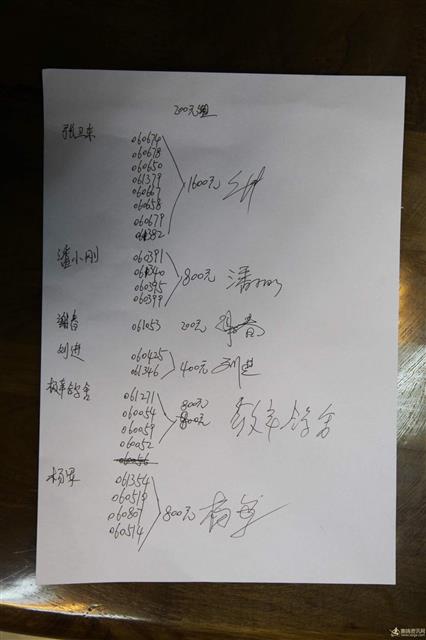 200元组
张卫东
060674
060678
060650
061379
060667
060658
060679
061382
1600元
潘小刚
060391
061340
060395
060399
800元
潘小刚
谢春
061053
200元
谢春
刘进
060425
061346
400元
刘进
061271
060054
060059
060052
060056
800元
800元
鸽舍
杨军
061354
060519
060807
060514
800元
杨军